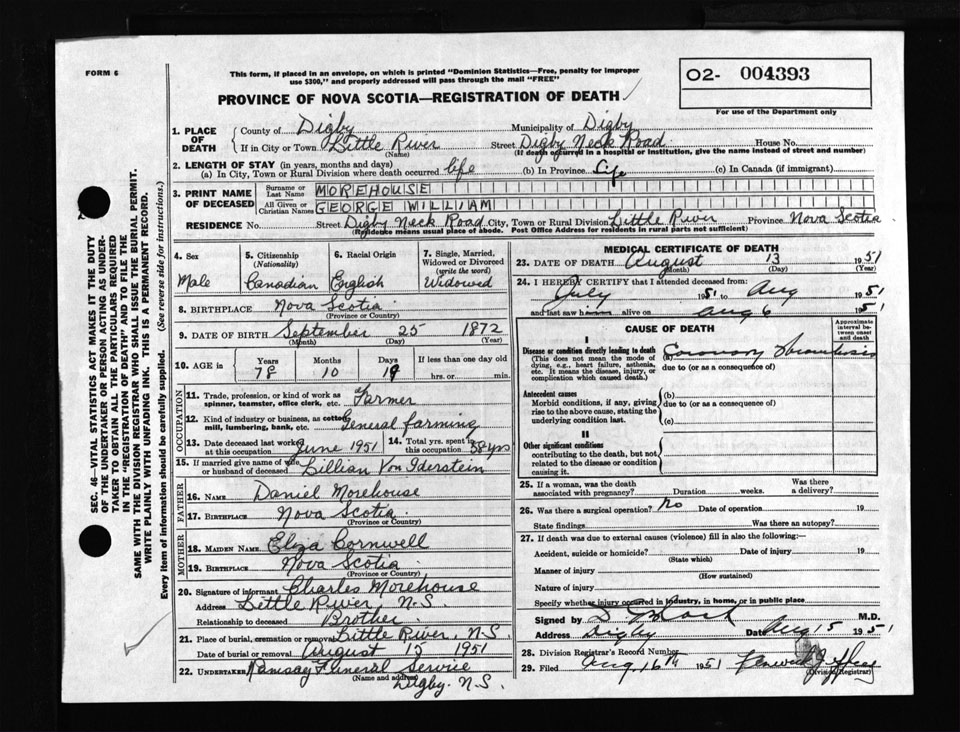 FORM 6
This form, if placed in an envelope, on which is printed "Dominion Statistics—Free, penalty for improper
use $300," and properly addressed will pass through the mail "FREE"
O2- 004393
For use of the Department only
PROVINCE OF NOVA SCOTIA—REGISTRATION OF DEATH
SEC. 46—VITAL STATISTICS ACT MAKES IT THE DUTY
OF THE UNDERTAKER OR PERSON ACTING AS UNDER-
TAKER TO OBTAIN ALL THE PARTICULARS REQUIRED
IN THE "REGISTRATION OF DEATH" AND TO FILE THE
SAME WITH THE DIVISION REGISTRAR WHO SHALL ISSUE THE BURIAL PERMIT.
WRITE PLAINLY WITH UNFADING INK. THIS IS A PERMANENT RECORD.
Every item of information should be carefully supplied. (See reverse side for instructions.)
1. PLACE OF DEATH County of Digby Municipality of Digby
If in City or Town Little River Street Digby Neck Road House No.
(Name) (If death occurred in a hospital or institution, give the name instead of street and number)
2. LENGTH OF STAY (in years, months and days)
(a) In City, Town or Rural Division where death occurred life (b) In Province Life (c) In Canada (if immigrant)
3. PRINT NAME OF DECEASED Surname or Last Name MOREHOUSE
All Given or Christian Names GEORGE WILLIAM
RESIDENCE No. Street Digby Neck Road City, Town or Rural Division Little River Province Nova Scotia
(Residence means usual place of abode. Post Office Address for residents in rural parts not sufficient)
4. Sex 5. Citizenship (Nationality) 6. Racial Origin 7. Single, Married, Widowed or Divorced (write the word)
Male Canadian English Widowed
8. BIRTHPLACE Nova Scotia
(Province or Country)
9. DATE OF BIRTH September 25 1872
(Month) (Day) (Year)
10. AGE in Years Months Days If less than one day old
78 10 19 hrs. or min.
OCCUPATION
11. Trade, profession, or kind of work as spinner, teamster, office clerk, etc. Farmer
12. Kind of industry or business, as cotton mill, lumbering, bank, etc. General farming
13. Date deceased last worked at this occupation June 1951 14. Total yrs. spent in this occupation 58 yrs
15. If married give name of wife or husband of deceased Lillian Von Iderstein
FATHER
16. NAME Daniel Morehouse
17. BIRTHPLACE Nova Scotia
(Province or Country)
MOTHER
18. MAIDEN NAME Eliza Cornwell
19. BIRTHPLACE Nova Scotia
(Province or Country)
20. Signature of informant Charles Morehouse
Address Little River, N.S.
Relationship to deceased Brother
21. Place of burial, cremation or removal Little River, N.S.
Date of burial or removal August 15 1951
22. UNDERTAKER Ramsay Funeral Service
(Name and address)
Digby. N.S.
MEDICAL CERTIFICATE OF DEATH
23. DATE OF DEATH August 13 1951
(Month) (Day) (Year)
24. I HEREBY CERTIFY that I attended deceased from:
July 1951 to Aug 1951
and last saw h alive on Aug 6 1951
CAUSE OF DEATH
Approximate interval between onset and death
I
Disease or condition directly leading to death (a) Coronary thrombosis
(This does not mean the mode of dying, e.g., heart failure, asthenia, etc. It means the disease, injury, or complication which caused death.)
due to (or as a consequence of)
Antecedent causes (b)
Morbid conditions, if any, giving rise to the above cause, stating the underlying condition last.
due to (or as a consequence of)
(c)
II
Other significant conditions
contributing to the death, but not related to the disease or condition causing it.
25. If a woman, was the death associated with pregnancy? Duration weeks. Was there a delivery?
26. Was there a surgical operation? No Date of operation 19
State findings Was there an autopsy?
27. If death was due to external causes (violence) fill in also the following:—
Accident, suicide or homicide? Date of injury 19
(State which)
Manner of injury
(How sustained)
Nature of injury
Specify whether injury occurred in industry, in home, or in public place
Signed by M.D.
Address Digby Date Aug 15 1951
28. Division Registrar's Record Number
29. Filed Aug 16th 1951
(Division Registrar)